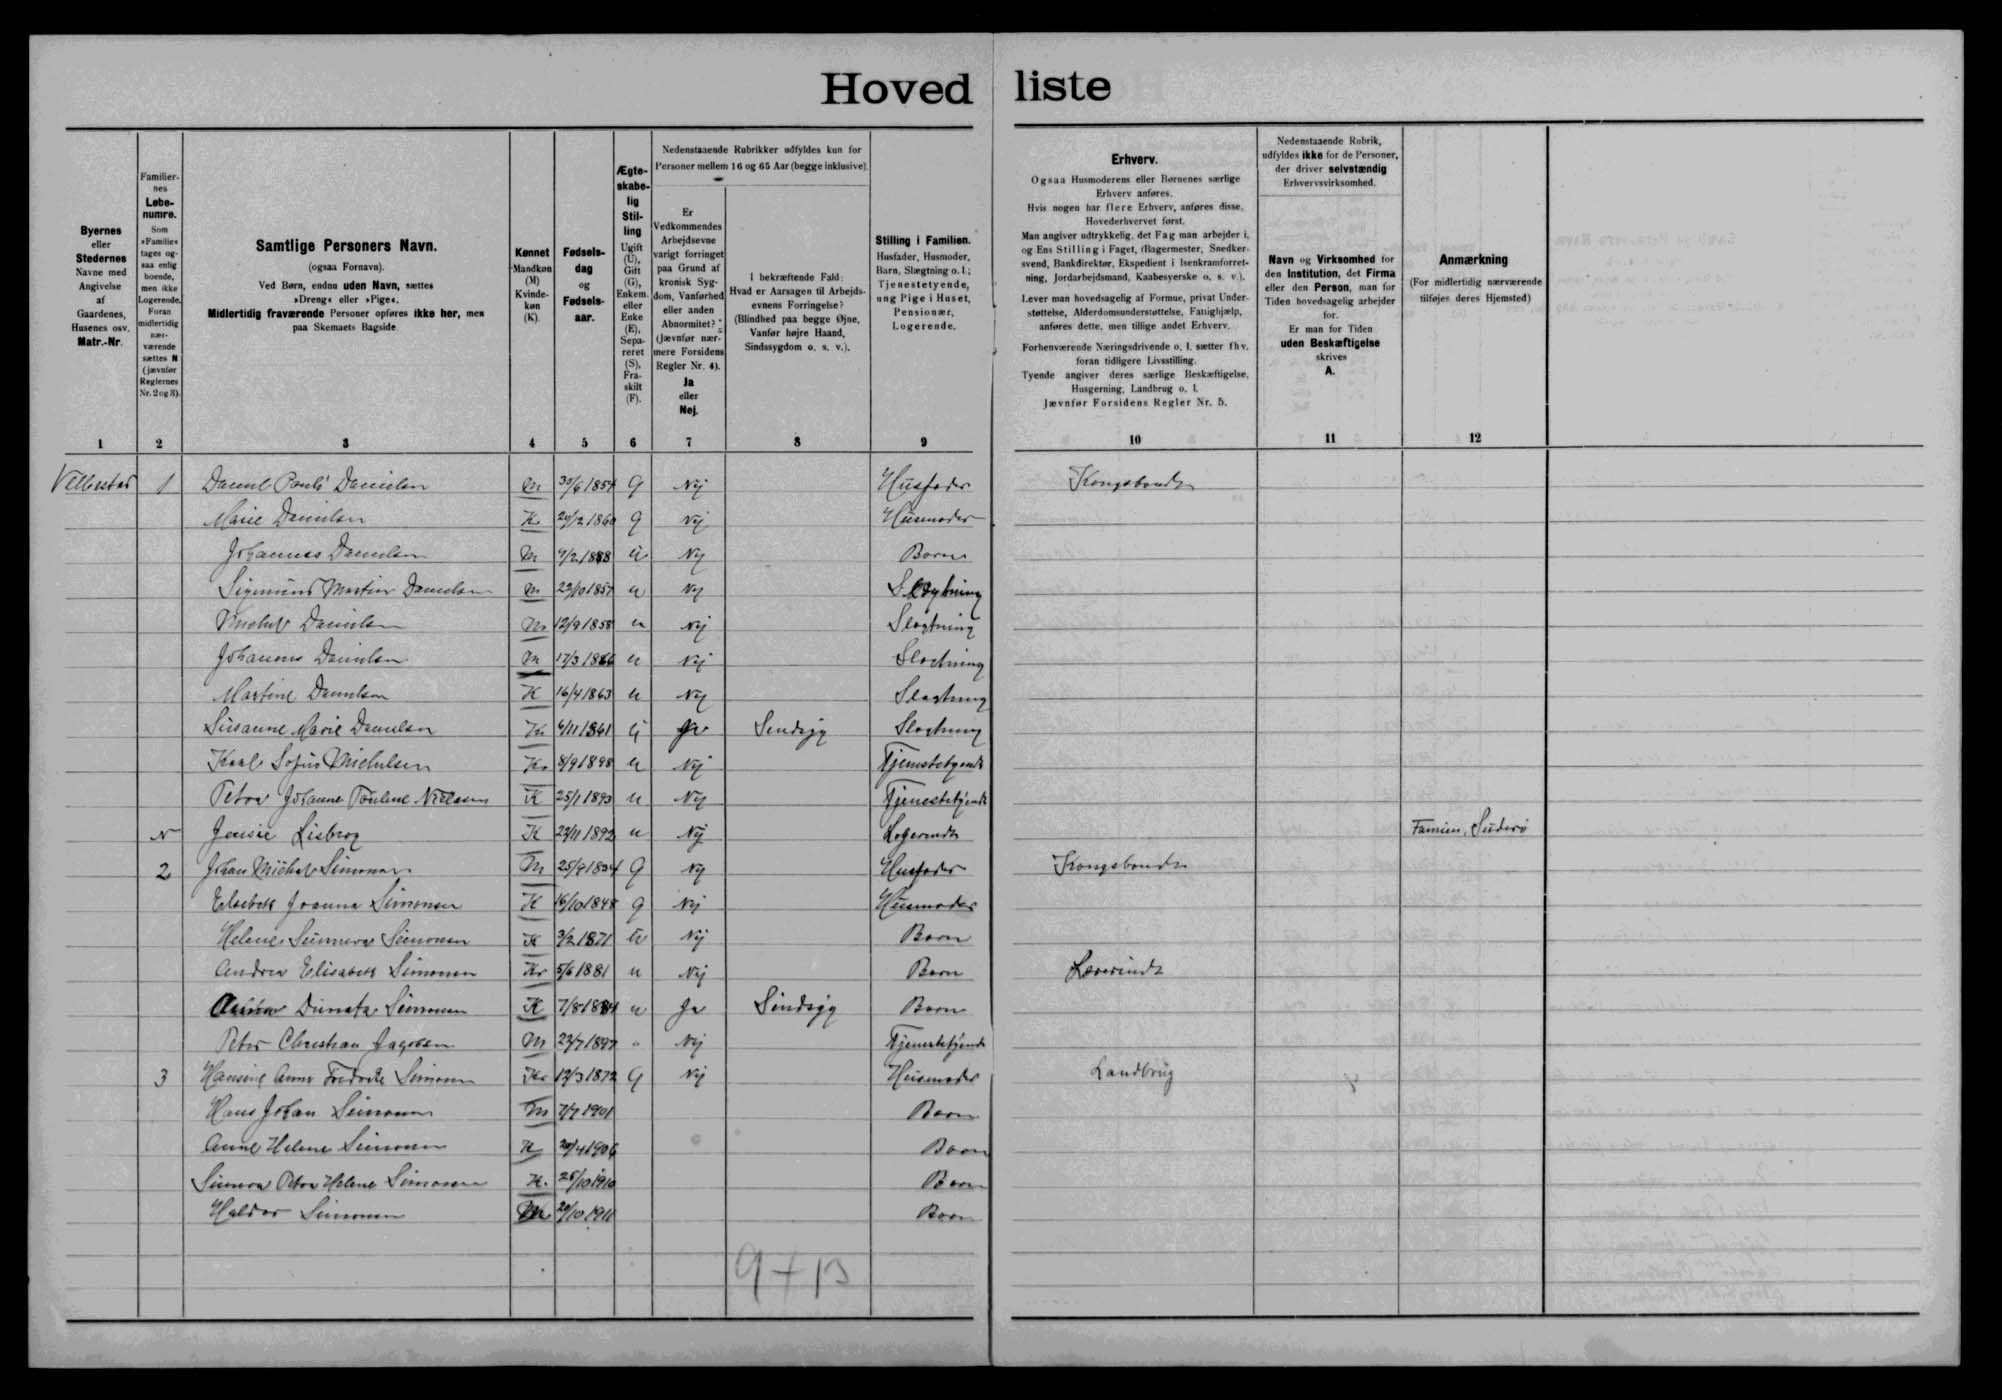 Hovedliste
Nedenstaaende Rubrikker udfyldes kun for
Personer mellem 16 og 65 Aar (begge inklusive).
Byernes
eller
Stedernes
Navne med
Angivelse
af
Gaardenes,
Husenes osv.
Matr.-Nr.
Familier-
nes
Løbe-
numre.
Som
»Familie«
tages og-
saa enlig
boende,
men ikke
Logerende.
Foran
midlertidig
nær-
værende
sættes N
(jævnfør
Reglernes
Nr. 2 og 3).
Samtlige Personers Navn.
(ogsaa Fornavn).
Ved Børn, endnu uden Navn, sættes
»Dreng« eller »Pige«.
Midlertidig fraværende Personer opføres ikke her, men
paa Skemaets Bagside.
Kønnet
Mandkøn
(M)
Kvinde-
køn
(K).
Fødsels-
dag
og
Fødsels-
aar.
Ægte-
skabe-
lig
Stil-
ling
Ugift
(U),
Gift
(G),
Enkem.
eller
Enke
(E),
Sepa-
reret
(S),
Fra-
skilt
(F).
Er
Vedkommendes
Arbejdsevne
varigt forringet
paa Grund af
kronisk Syg-
dom, Vanførhed
eller anden
Abnormitet?
(Jævnfør nær-
mere Forsidens
Regler Nr. 4).
Ja
eller
Nej.
I bekræftende Fald:
Hvad er Aarsagen til Arbejds-
evnens Forringelse?
(Blindhed paa begge Øjne,
Vanfør højre Haand,
Sindssygdom o. s. v.).
Stilling i Familien.
Husfader, Husmoder,
Barn, Slægtning o. l.;
Tjenestetyende,
ung Pige i Huset,
Pensionær,
Logerende.
Erhverv.
Ogsaa Husmoderens eller Børnenes særlige
Erhverv anføres.
Hvis nogen har flere Erhverv, anføres disse,
Hovederhvervet først.
Man angiver udtrykkelig, det Fag man arbejder i,
og Ens Stilling i Faget, (Bagermester, Snedker-
svend, Bankdirektør, Ekspedient i Isenkramforret-
ning, Jordarbejdsmand, Kaabesyerske o. s. v.).
Lever man hovedsagelig af Formue, privat Under-
støttelse, Alderdomsunderstøttelse, Fattighjælp,
anføres dette, men tillige andet Erhverv.
Forhenværende Næringsdrivende o. l. sætter fhv.
foran tidligere Livsstilling.
Tyende angiver deres særlige Beskæftigelse,
Husgerning, Landbrug o. l.
Jævnfør Forsidens Regler Nr. 5.
Nedenstaaende Rubrik,
udfyldes ikke for de Personer,
der driver selvstændig
Erhvervsvirksomhed.
Navn og Virksomhed for
den Institution, det Firma
eller den Person, man for
Tiden hovedsagelig arbejder
for.
Er man for Tiden
uden Beskæftigelse
skrives
A.
Anmærkning
(For midlertidig nærværende
tilføjes deres Hjemsted)
1 2 3 4 5 6 7 8 9 10 11 12
Velbestad 1 Daniel Pauli Danielsen M 30/6 1854 G Nej Husfader Kongsbonde
Marie Danielsen K 1860 G Nej Husmoder
Johannes Danielsen M 1888 U Nej Barn
Sigmund Martin Danielsen M u Nej Slægtning
Michal Danielsen M 12/9 1858 u Nej Slægtning
Johannes Danielsen M 17/3 1866 u Nej Slægtning
Martine Danielsen K 16/4 1863 u Nej Slægtning
Susanne Marie Danielsen K 6/11 1861 U Ja Sindsyg Slægtning
Sofus Michelsen 8/9 1898 u Nej Tjenestetyende
Petra Johanne Pouline Nielsen K 25/1 1893 u Nej Tjenestetyende
N Jensie Lisberg K 22/11 1892 u Nej Logerende Famien, Suderø
2 Johan Michal Simonsen M 25/9 1834 G Nej Husfader Kongsbonde
Elsebeth Joanna Simonsen K 16/10 1848 G Nej Husmoder
Helene Sunneva Simonsen K 3/2 1871 U Nej Barn
Andrea Elisabeth Simonsen K 5/6 1881 u Nej Barn Lærerinde
Simonsen K 7/8 1884 u Ja Sindsyg Barn
Peter Christian Jacobsen M 22/7 1897 " Nej Tjenestetyende
3 Hansine Anna Simonsen K 12/3 1872 G Nej Husmoder Landbrug
Hans Johan Simonsen M 7/7 1901 Barn
Anne Helene Simonsen K 20/4 1906 Barn
Sunneva Petra Helene Simonsen K 1910 Barn
Haldor Simonsen M 1911 Barn
9 + 13